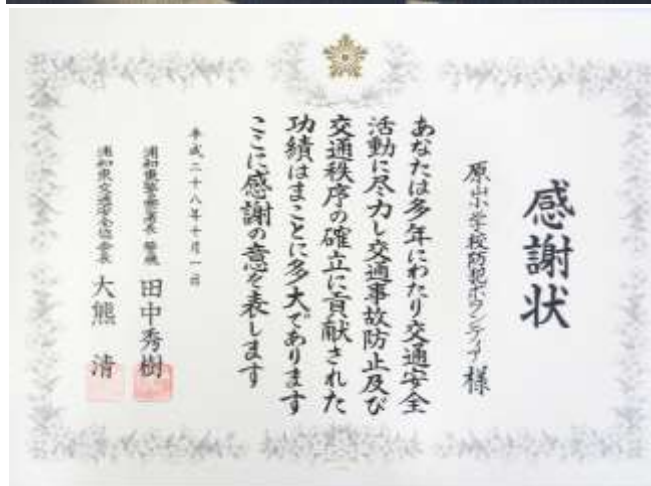 感謝状
原山小学校防犯ボランティア様
あなたは多年にわたり交通安全
活動に尽力し交通事故防止及び
交通秩序の確立に貢献された
功績はまことに多大であります
ここに感謝の意を表します
平成二十八年十月一日
浦和東警察署長 警視 田中秀樹
浦和東交通安全協会長 大熊 清